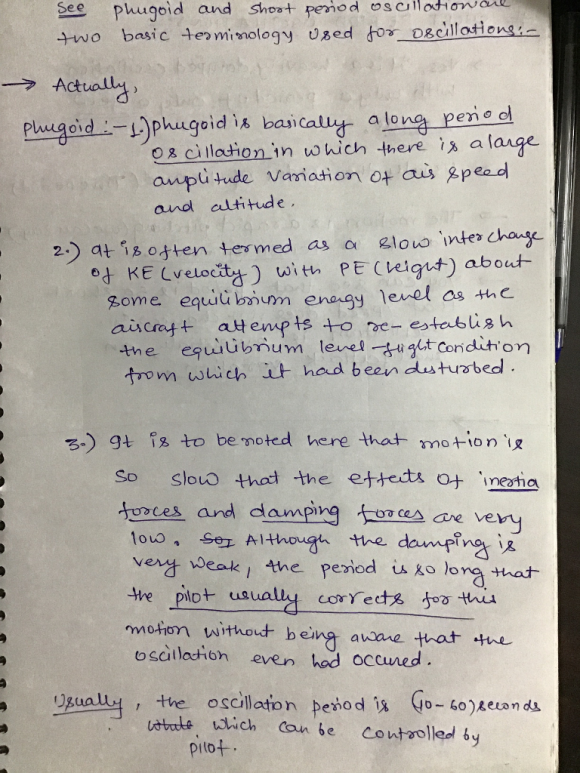 See phugoid and short period oscillation are
two basic terminology used for oscillations:-
→ Actually,
Phugoid :- 1.) Phugoid is basically a long period
oscillation in which there is a large
amplitude variation of air speed
and altitude.
2.) It is often termed as a slow interchange
of KE (velocity) with PE (height) about
some equilibrium energy level as the
aircraft attempts to re-establish
the equilibrium level-flight condition
from which it had been disturbed.
3.) It is to be noted here that motion is
so slow that the effects of inertia
forces and damping forces are very
low. Although the damping is
very weak, the period is so long that
the pilot usually corrects for this
motion without being aware that the
oscillation even had occured.
Usually, the oscillation period is (10-60) seconds
which can be controlled by
pilot.